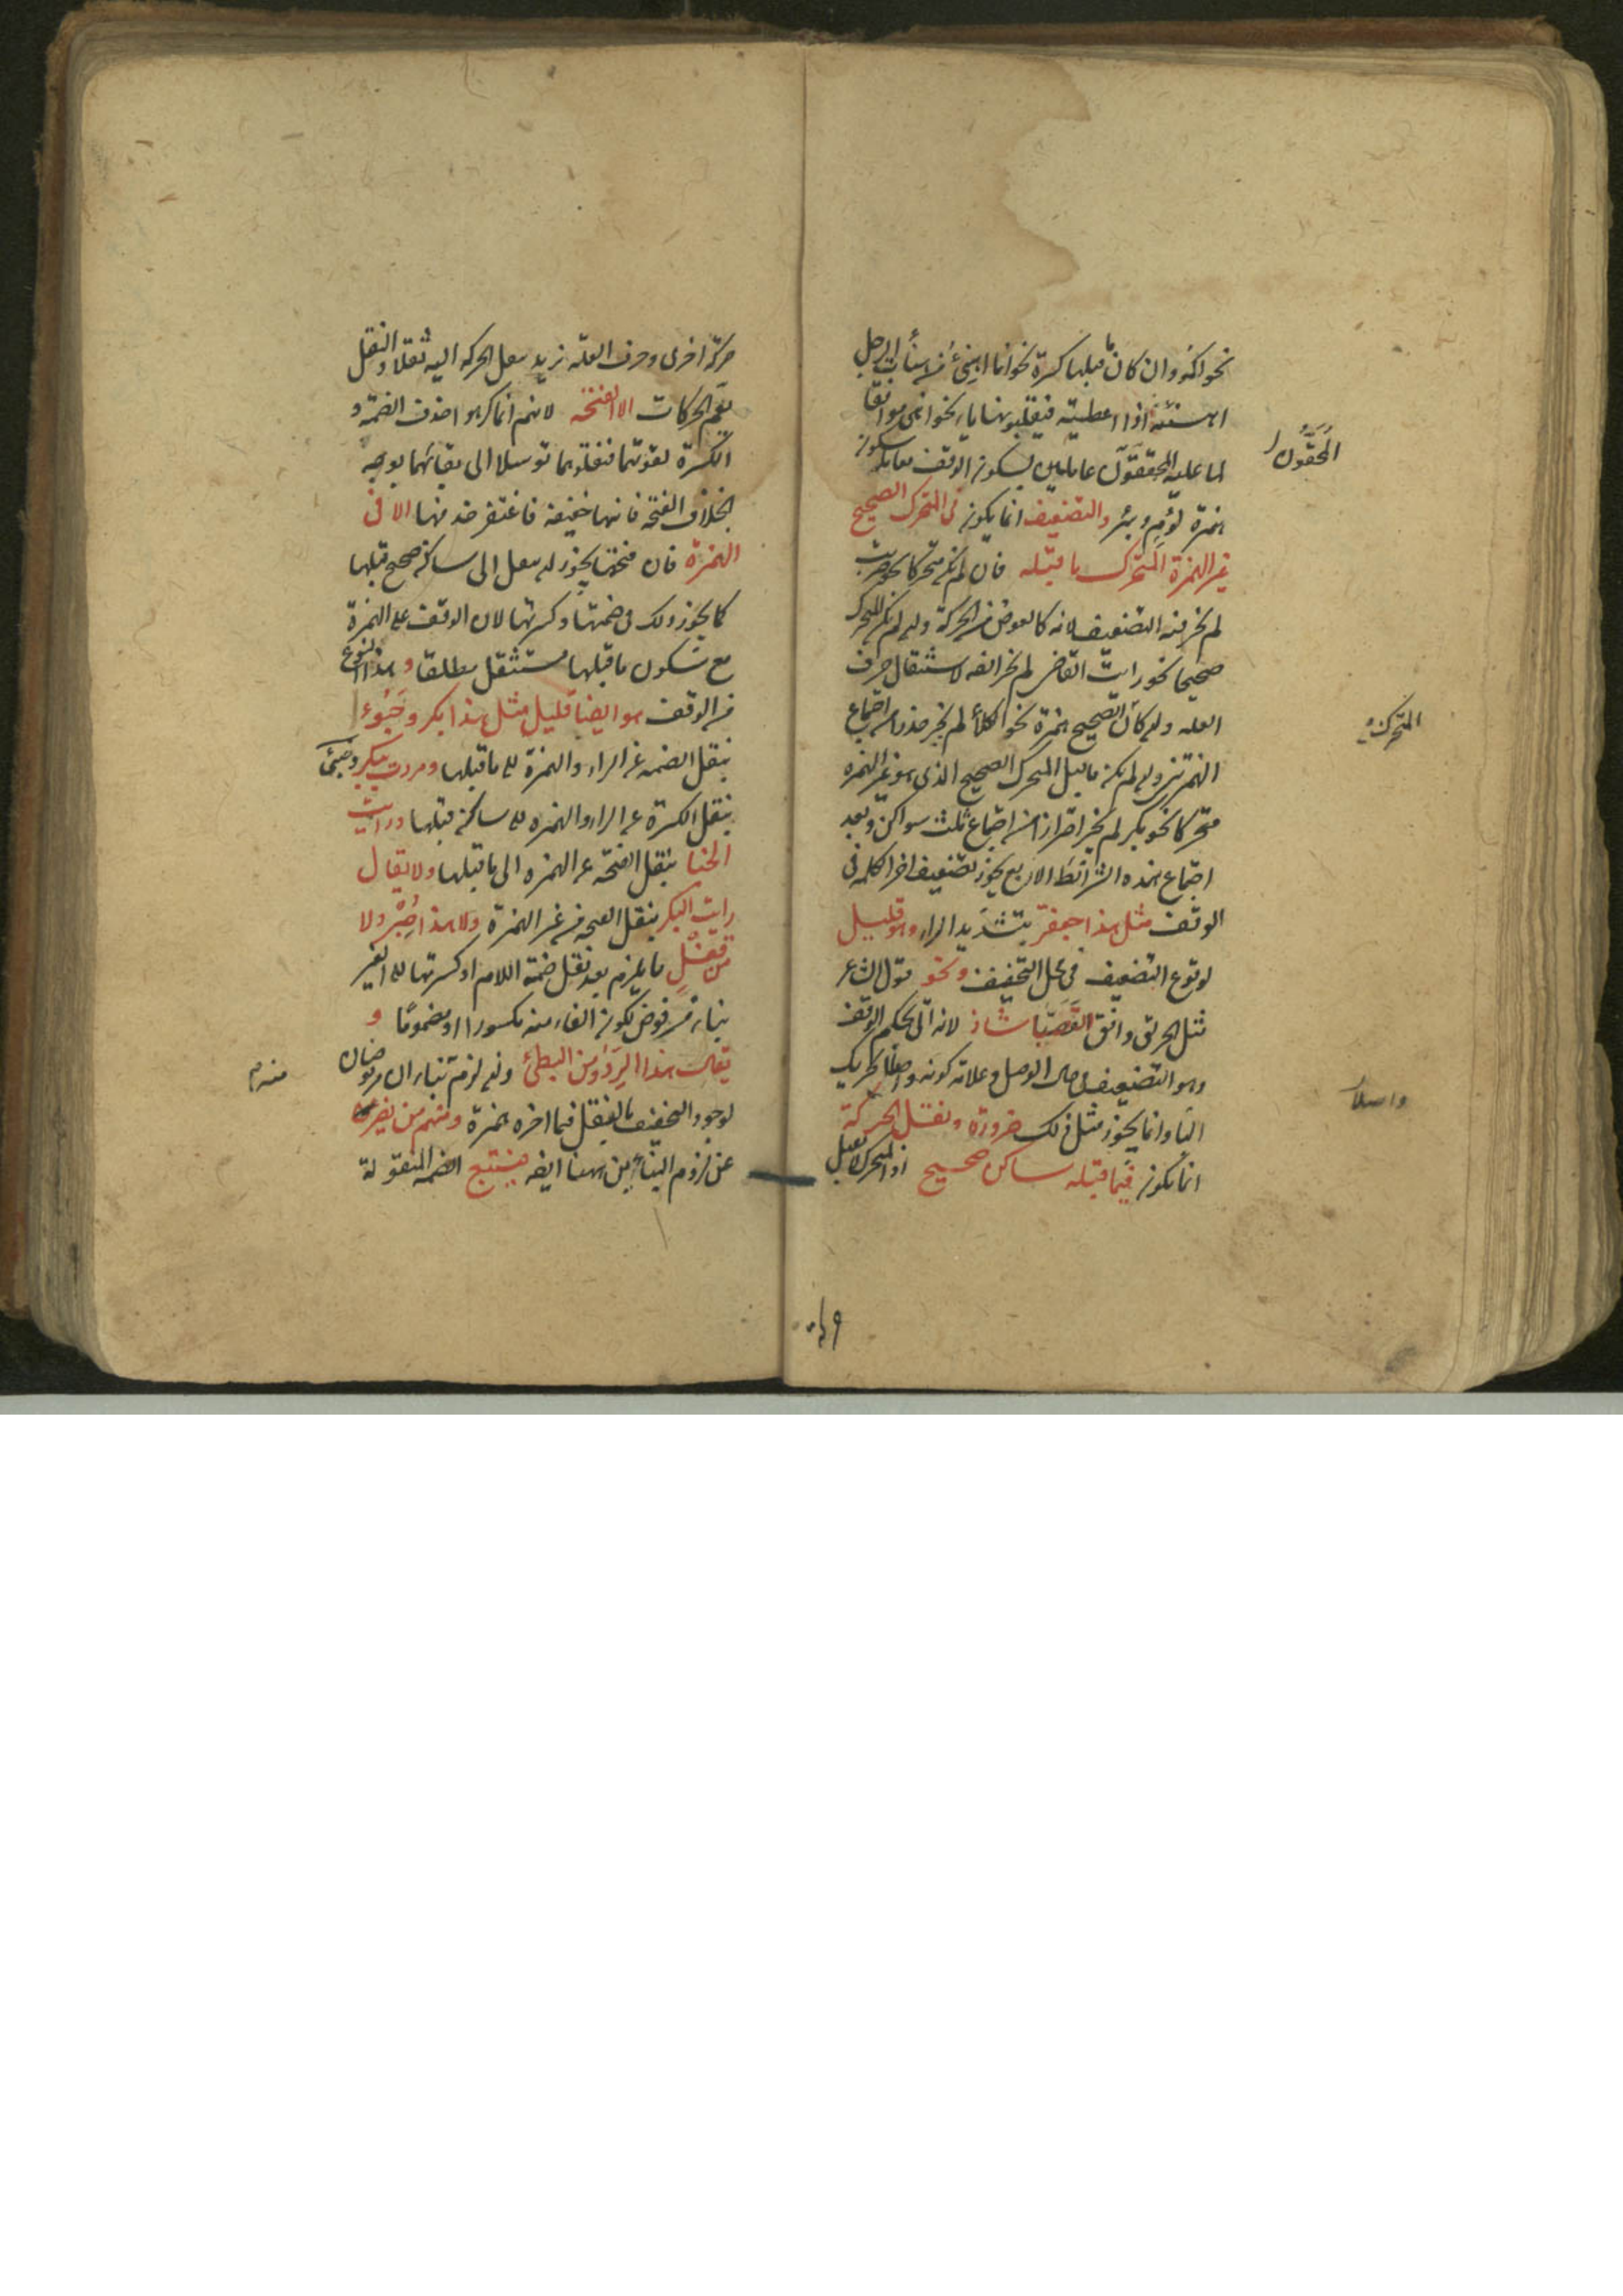 نحو اكمؤ وان كان ما قبلها كسرة نحو انا اهنئ من هنأت الرجل
اهنئه اذا اعطيته فيقلبونها ياء نحو اهنى موافقا
لما عليه المحققون
همزة لؤم وبئر والتضعيف انما يكون فى المتحرك الصحيح
غير الهمزة المتحرك ما قبله فان لم يكن متحركا
لم يجز فيه التضعيف لانه كالعوض من الحركة وان لم يكن المتحرك
صحيحا نحو رايت القاضى لم يجز ايضا لاستثقال حرف
العلة وان كان الصحيح همزة نحو الكلأ لم يجز حذرا من اجتماع
الهمزتين وان لم يكن ما قبل المتحرك الصحيح الذى هو غير الهمزه
متحركا نحو بكر لم يجز احترازا من اجتماع ثلث سواكن وبعد
اجتماع هذه الشرائط الاربع يجوز تضعيف اخر الكلمة فى
الوقف مثل هذا جعفرّ بتشديد الراء وهو قليل
لوقوع التضعيف فى محل التخفيف ونحو قول الشاعر
مثل الحريق وافق القصبّا شاذ لانه اتى بحكم الوقف
وهو التضعيف فى حال الوصل وعلامة كونه واصلا تحريك
الباء وانما يجوز مثل ذلك ضرورة ونقل الحركة
انما يكون فيما قبله ساكن صحيح اذ المتحرك لا يقبل
المحققون
المتحرك
واصلا
٤٩
حركة اخرى وحرف العلة يزيد بنقل الحركة اليه ثقلا والنقل
يعم الحركات الا الفتحة لانهم انما كرهوا حذف الضمة و
الكسرة لقوتهما فنقلوهما توسلا الى بقائهما بوجه
بخلاف الفتحة فانها خفيفة فاغتفر حذفها الا فى
الهمزة فان فتحتها يجوز ان ينقل الى ساكن صحيح قبلها
كما يجوز ذلك فى ضمتها وكسرتها لان الوقف على الهمزة
مع سكون ما قبلها مستثقل مطلقا وهذا النوع
من الوقف هو ايضا قليل مثل هذا بكر وخبؤ
بنقل الضمة عن الراء والهمزة الى ما قبلها ومررت ببكر وخبئ
بنقل الكسرة عن الراء والهمزه الى ساكن قبلها ورايت
الخبا بنقل الفتحة عن الهمزه الى ما قبلها ولا يقال
رايت البكر بنقل الفتحة من غير الهمزة ولا هذا حبر ولا
من قفل لما يلزم بعد نقل ضمة اللام او كسرتها الى العين
بناء مرفوض بكون الفاء منه مكسورا او مضموما و
يقال هذا الردؤ ومن البطئ وان لزم بناءان مرفوضان
لوجود التخفيف بالنقل فيما اخره همزة ومنهم من يفر
عن لزوم البنائين ههنا ايضا فيتبع الضمة المنقولة
منه